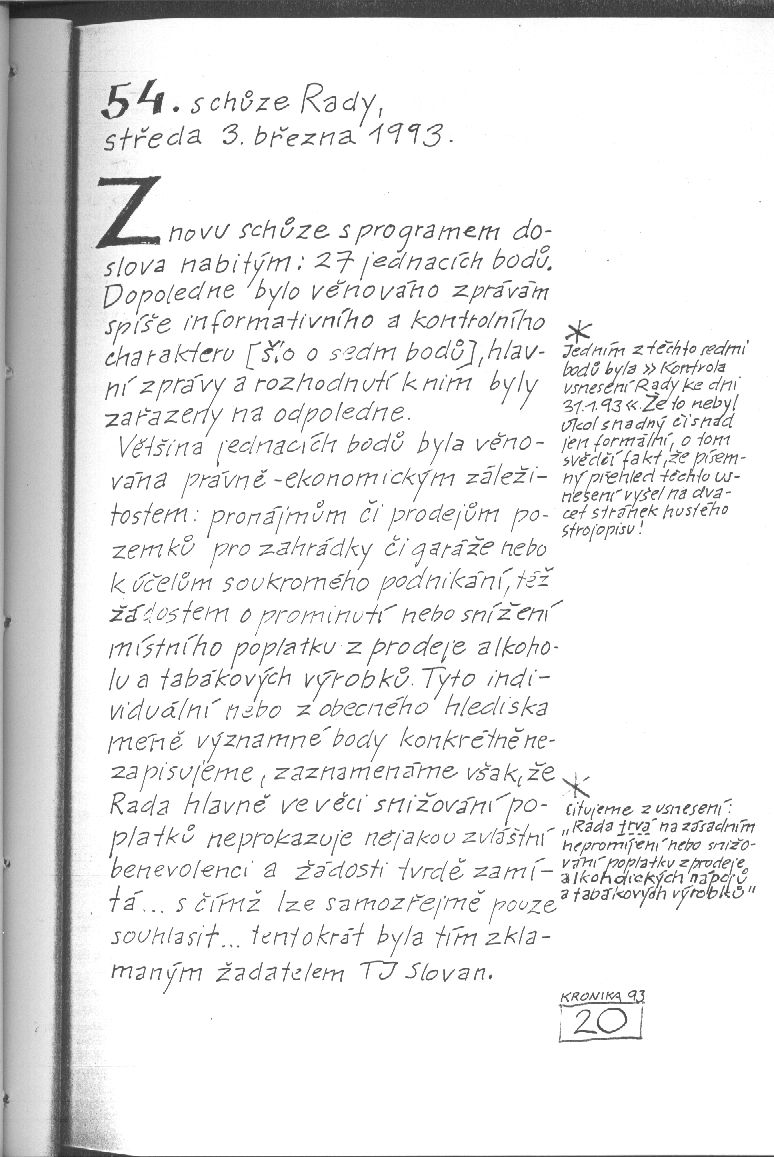 54. schůze Rady,
středa 3. března 1993.
Znovu schůze s programem do-
slova nabitým: 27 jednacích bodů.
Dopoledne bylo věnováno zprávám
spíše informativního a kontrolního
charakteru [šlo o sedm bodů], hlav-
ní zprávy a rozhodnutí k nim byly
zařazeny na odpoledne.
Většina jednacích bodů byla věno-
vána právně-ekonomickým záleži-
tostem: pronájmům či prodejům po-
zemků pro zahrádky či garáže nebo
k účelům soukromého podnikání, též
žádostem o prominutí nebo snížení
místního poplatku z prodeje alkoho-
lu a tabákových výrobků. Tyto indi-
viduální nebo z obecného hlediska
méně významné body konkrétně ne-
zapisujeme, zaznamenáme však, že
Rada hlavně ve věci snižování po-
platků neprokazuje nějakou zvláštní
benevolenci a žádosti tvrdě zamí-
tá... s čímž lze samozřejmě pouze
souhlasit... tentokrát byla tím zkla-
maným žadatelem TJ Slovan.
*
Jedním z těchto sedmi
bodů byla »Kontrola
usnesení Rady ke dni
31.1.93«. Že to nebyl
úkol snadný či snad
jen formální, o tom
svědčí fakt, že písem-
ný přehled těchto us-
nesení vyšel na dva-
cet stránek hustého
strojopisu!
*
citujeme z usnesení:
„Rada trvá na zásadním
nepromíjení nebo snižo-
vání poplatku z prodeje
alkoholických nápojů
a tabákových výrobků"
KRONIKA 93
20